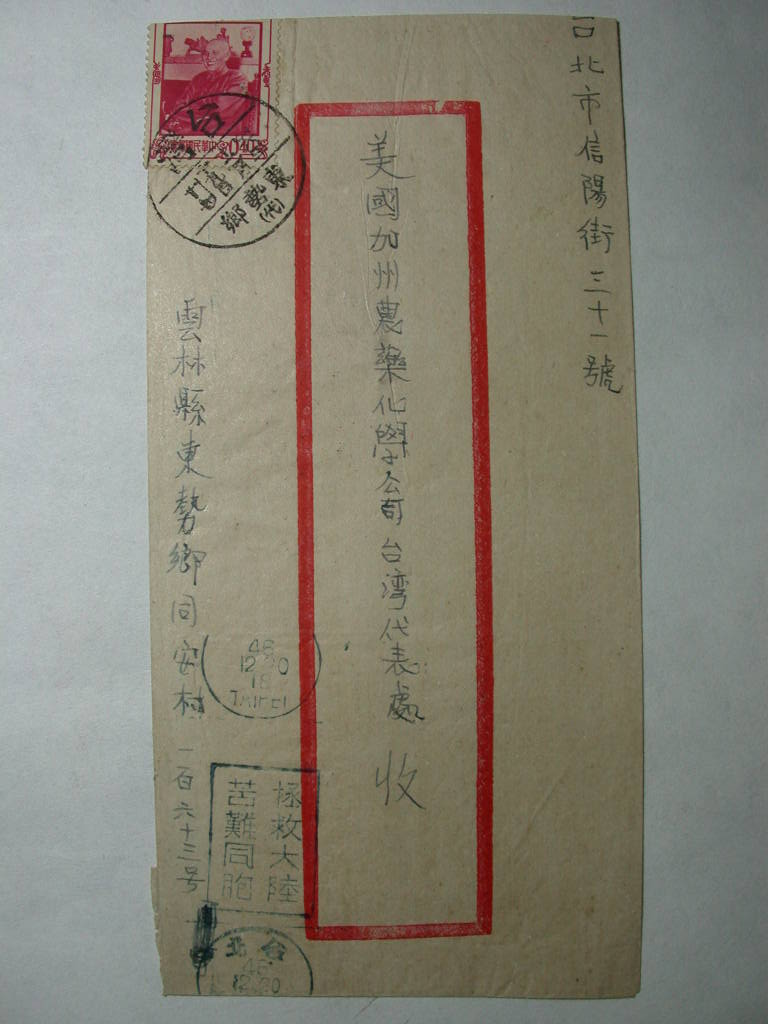 台北市信陽街三十一號
美國加州農藥化學公司台灣代表處 收
雲林縣東勢鄉同安村一百六十三号
中華民國郵票
0.40
台
東勢鄉
(代)
46
12 30
18
TAIPEI
拯救大陸
苦難同胞
台北
46
12 30